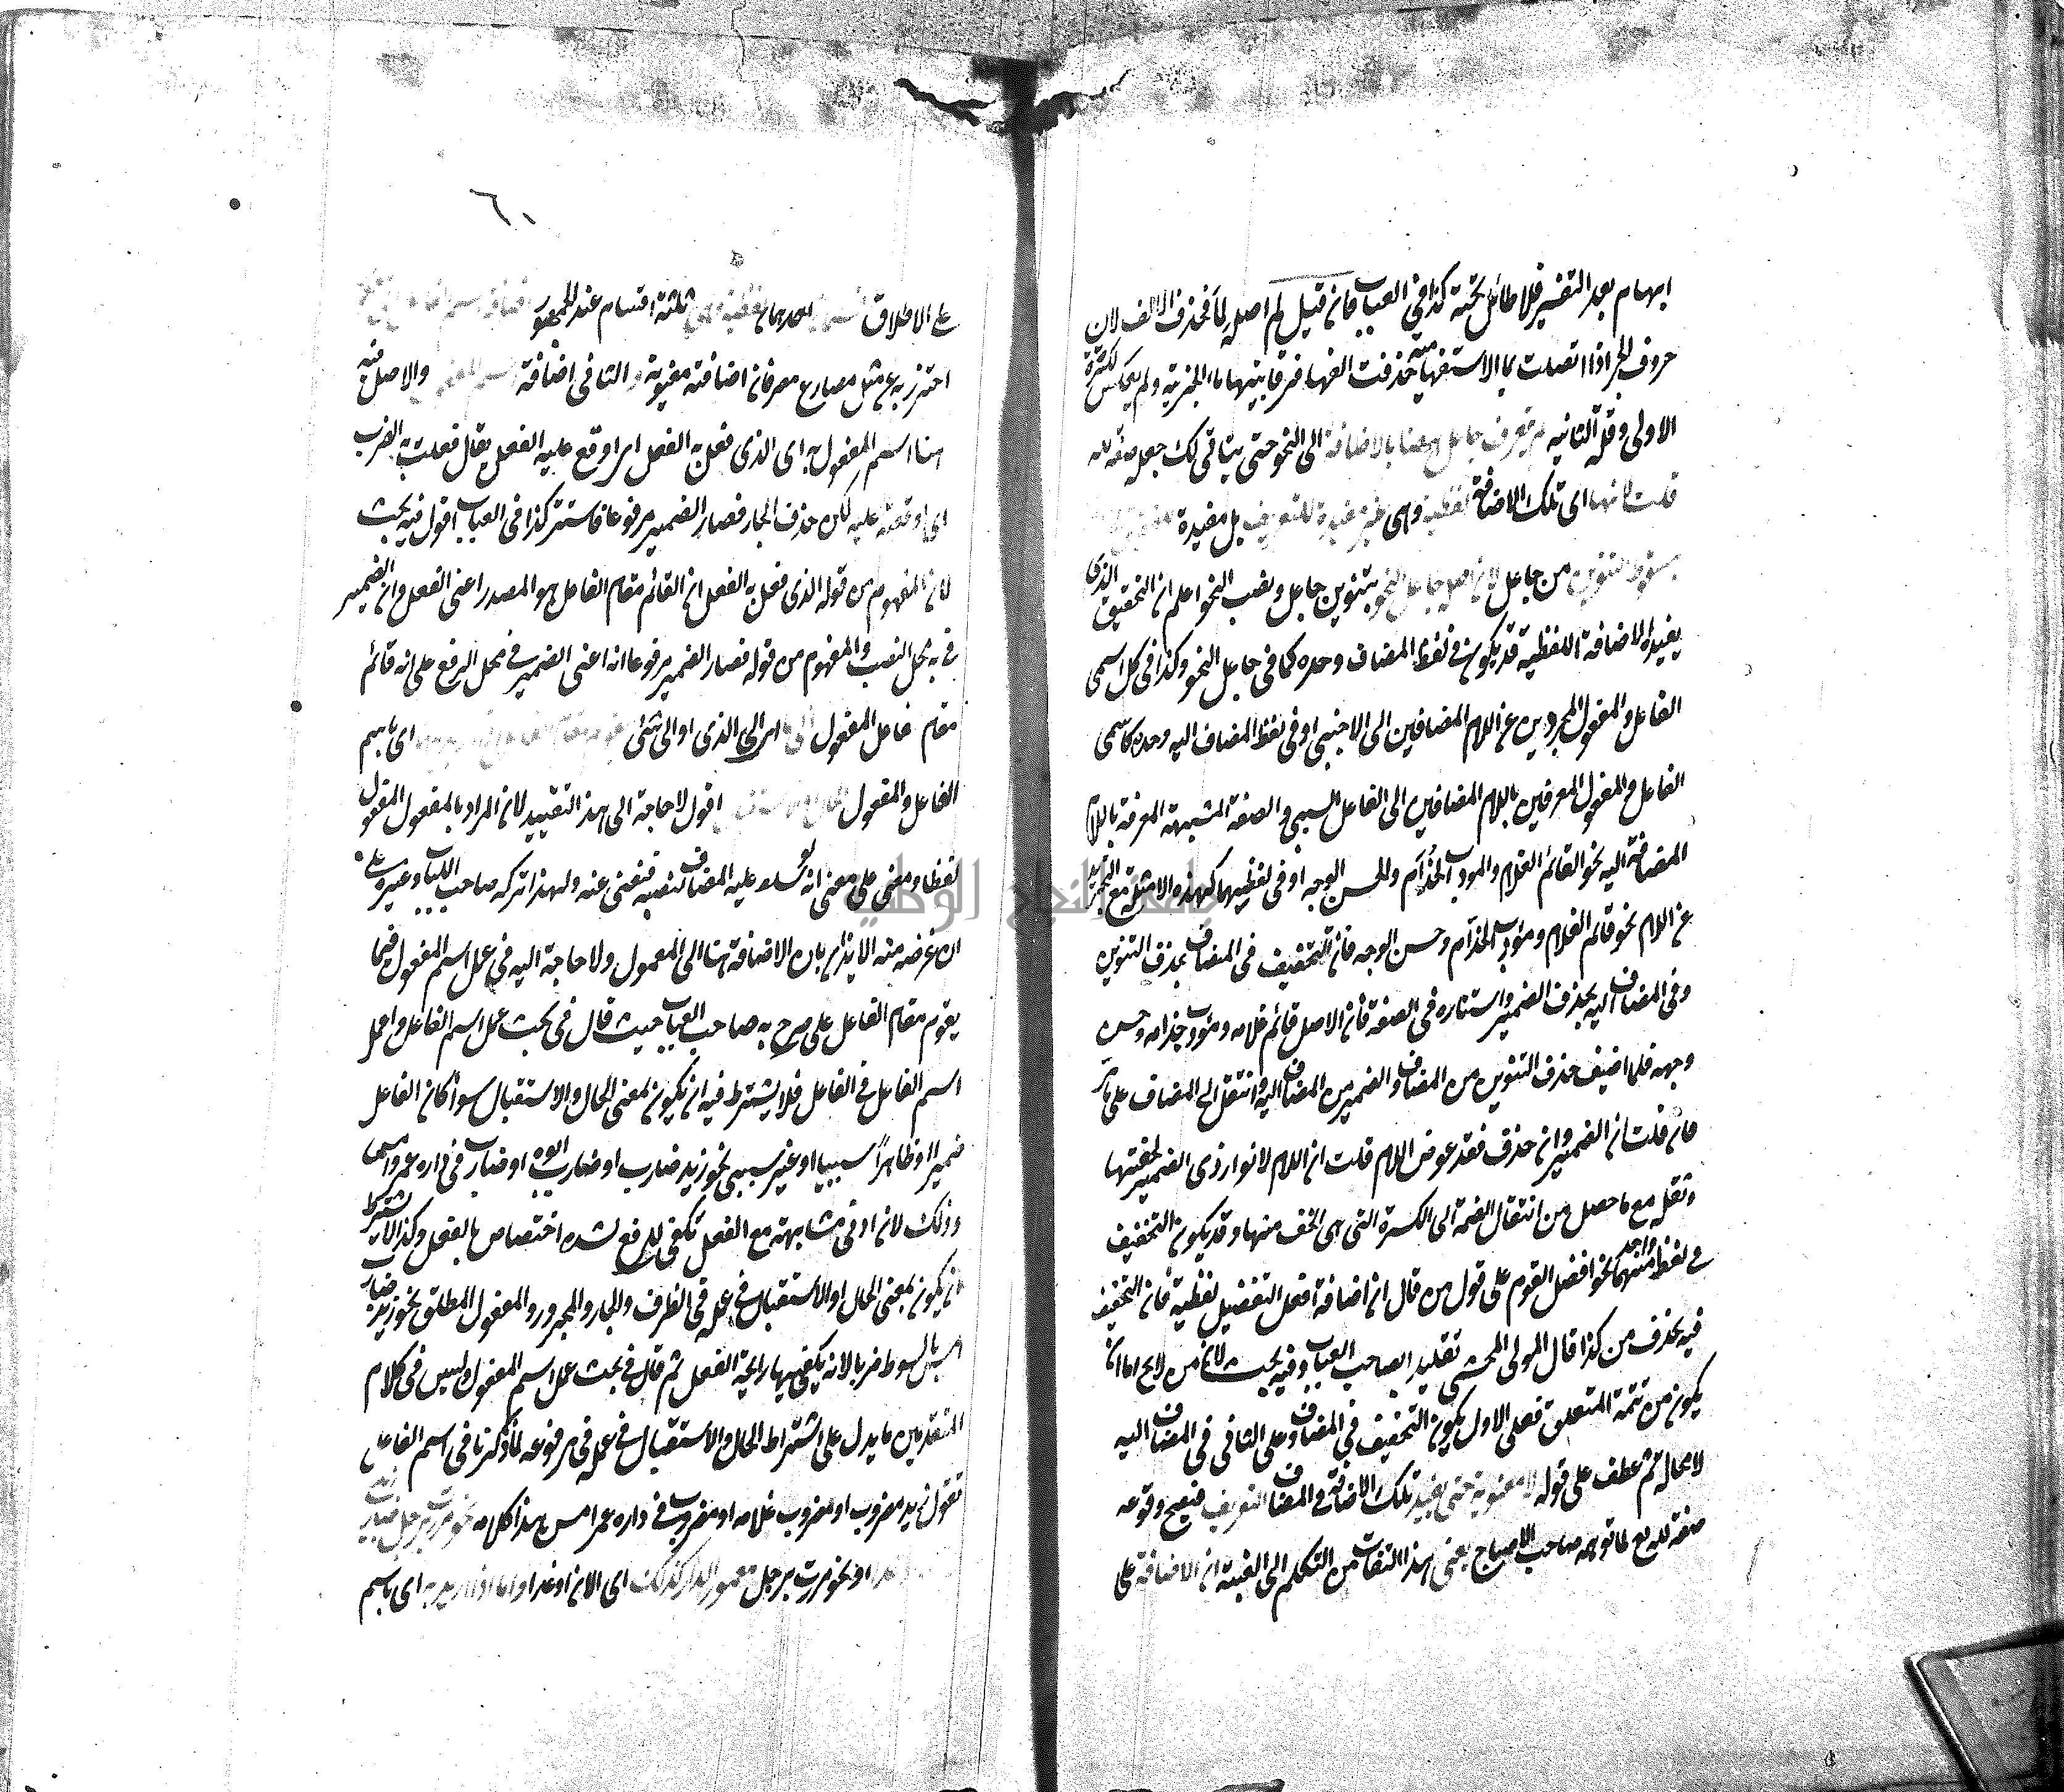 ابهام بعد التفسير فلا طائل تحته كذا في العباب فان قيل لم اصله لما فحذف الالف لان
حروف الجر اذا اتصلت بما الاستفهامية حذفت الفها فرقا بينها وما الخبرية ولم يعكس لكثرة
الاولى وقلة الثانية لم يتعرف جاعل ههنا بالاضافة الى النحو حتى يتأتى لك جعل صفة لله
قلت لانها اى تلك الاضافة لفظية وهى غير مفيدة للتعريف بل مفيدة
بسقوط التنوين من جاعل لان اصله جاعل النحو بتنوين جاعل ونصب النحو اعلم ان التخفيف الذى
يفيده الاضافة اللفظية قد يكون في لفظ المضاف وحده كما في جاعل النحو وكذا في كل اسمى
الفاعل والمفعول المجردين عن اللام المضافين الى الاجنبى او فى لفظ المضاف اليه وحده كاسمى
الفاعل والمفعول المعرفين باللام المضافين الى الفاعل السببى والصفة المشبهة المعرفة باللام
المضافة اليه نحو القائم الغلام والمؤدب الخدام والحسن الوجه او فى لفظيهما كهذه الامثلة مع التجريد
عن اللام نحو قائم الغلام ومؤدب الخدام وحسن الوجه فان التخفيف فى المضاف بحذف التنوين
وفى المضاف اليه بحذف الضمير واستتاره فى الصفة فان الاصل قائم غلامه ومؤدب خدامه وحسن
وجهه فلما اضيف حذف التنوين من المضاف والضمير من المضاف اليه وانتقل الى المضاف على ما مر
فان قلت ان الضمير وان حذف فقد عوض اللام قلت ان اللام لا توازى الضمير لخفتها
وثقله مع ما حصل من انتقال الضمة الى الكسرة التى هى اخف منها وقد يكون التخفيف
في لفظ واحد منهما نحو افضل القوم على قول من قال ان اضافة افعل التفضيل لفظية فان التخفيف
فيه بحذف من كذا قال المولى المحشى تقليدا لصاحب العباب وفيه بحث لان من لا يخ اما ان
يكون من تتمة المتعلق فعلى الاول يكون التخفيف فى المضاف وعلى الثانى فى المضاف اليه
لا محالة ثم عطف على قوله لا معنوية حتى يفيد تلك الاضافة فى المضاف التعريف فيصح وقوعه
صفة لله مع ما توهمه صاحب الاصباح يعنى هذا التفات من التكلم الى الغيبة ان الاضافة على
٦٠
على الاطلاق احدهما لفظية وهى ثلثة اقسام عند الجمهور
احترز به عن مثل مصارع مصر فان اضافته معنوية والثانى اضافة اسم المفعول والاصل فيه
هنا اسم المفعول به اى الذى فعل به الفعل اى اوقع عليه الفعل يقال فعلت به الضرب
اى اوقعته عليه لكن حذف الجار فصار الضمير مرفوعا فاستتر كذا فى العباب اقول فيه بحث
لان المفهوم من قوله الذى فعل به الفعل ان القائم مقام الفاعل هو المصدر اعنى الفعل وان الضمير
فى به محل النصب والمفهوم من قوله فصار الضمير مرفوعا انه اعنى الضمير فى محل الرفع على انه قائم
مقام فاعل المفعول الى اى الى الذى او الى شئ اى هم
الفاعل والمفعول اقول لا حاجة الى هذا التقييد لان المراد بالمفعول المفعول
لفظا ومعنى على معنى انه عليه المضاف لنصبه فيغنى عنه ولهذا تركه صاحب اللباب وغيره على
ان غرضه منه الايذان بان الاضافة هنا الى المعمول ولا حاجة اليه فى عمل اسم المفعول فيما
يقوم مقام الفاعل على ما صرح به صاحب العباب حيث قال فى بحث عمل اسم الفاعل واعمل
اسم الفاعل فى الفاعل فلا يشترط فيه ان يكون بمعنى الحال والاستقبال سواء كان الفاعل
ضميرا او ظاهرا سببيا او غير سببى نحو زيد ضارب او ضارب ابوه او ضارب فى داره عمرو امس
وذلك لان ادنى مشابهته مع الفعل تكفى للرفع لشدة اختصاص بالفعل وكذا لا يشترط
ان يكون بمعنى الحال او الاستقبال فى عمله فى الظرف والجار والمجرور والمفعول المطلق نحو زيد ضارب
امس بالسوط ضربا لانه يكفيها رايحة الفعل ثم قال فى بحث عمل اسم المفعول وليس فى كلام
المتقدمين ما يدل على اشتراط الحال والاستقبال فى عمله فى مرفوعه لما ذكرنا فى اسم الفاعل
تقول زيد مضروب او مضروب غلامه او مضروب فى داره عمرو امس هذا كلامه نحو مررت برجل ضارب
غدا او نحو مررت برجل معمور الدار كذلك اى الان او غدا واما اذا اريد به اى باسم